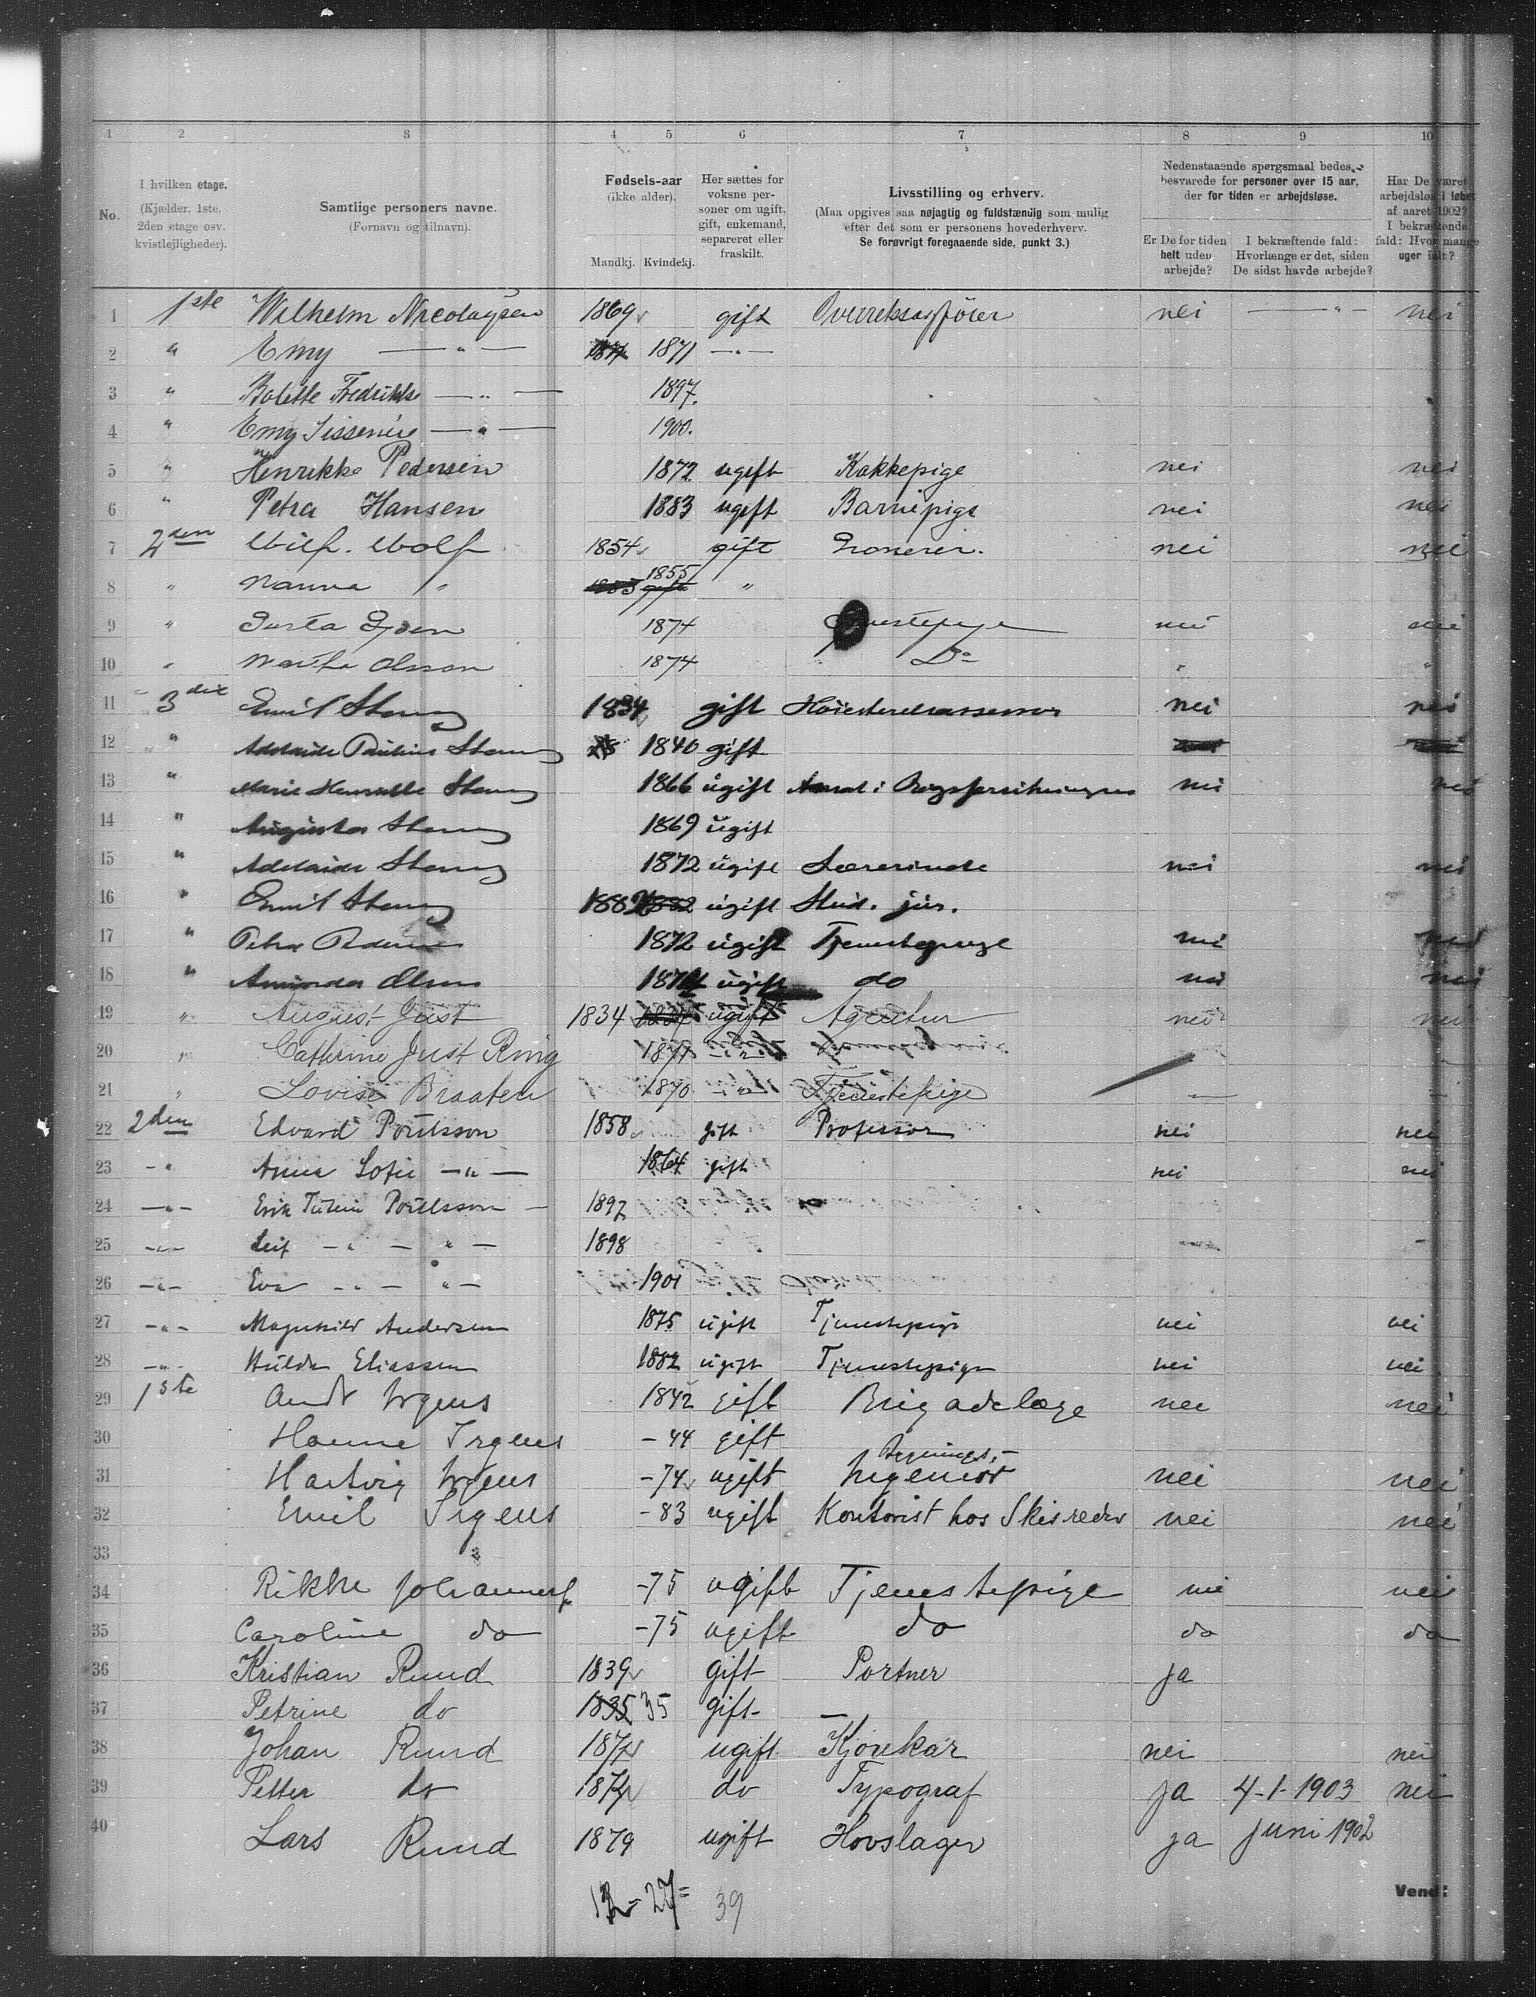 1 2 3 4 5 6 7 8 9 10
No.
I hvilken etage.
(Kjælder, 1ste.
2den etage osv.
kvistlejligheder).
Samtlige personers navne.
(Fornavn og tilnavn).
Fødsels-aar
(ikke alder).
Mandkj. Kvindekj.
Her sættes for
voksne per-
soner om ugift,
gift, enkemand,
separeret eller
fraskilt.
Livsstilling og erhverv.
(Maa opgives saa nøjagtig og fuldstændig som mulig
efter det som er personens hovederhverv.
Se forøvrigt foregaaende side, punkt 3.)
Nedenstaaende spørgsmaal bedes
besvarede for personer over 15 aar,
der for tiden er arbejdsløse.
Er De for tiden
helt uden
arbejde?
I bekræftende fald:
Hvorlænge er det, siden
De sidst havde arbejde?
Har De været
arbejdsløs i løbet
af aaret 1902?
I bekræftende
fald: Hvor mange
uger ialt?
1 1ste Wilhelm Nicolaysen 1869 gift nei — " — nei
2 " Emy — " — 1871 — " —
3 " Bolette Fredrikke — " — 1897.
4 " Emy — " — 1900.
5 " Henrikke Pedersen 1872 ugift Kokkepige nei nei
6 " Petra Hansen 1883 ugift Barnepige nei nei
7 2den Wilh. Wolf 1854 gift nei nei
8 " Nanna " 1855 "
9 " 1874 nei nei
10 " Martha Olsson 1874 Do " "
11 3die Emil 1834 gift Høiesteretsassessor nei nei
12 " Adelaide Pauline 1840 gift
13 " Marie Henriette 1866 ugift nei nei
14 " Augusta 1869 ugift
15 " Adelaide 1872 ugift Lærerinde nei nei
16 " Emil 1882 ugift Stud. jur.
17 " Petra Pedersen 1872 ugift Tjenestepige nei nei
18 " Amanda Olsen ugift do nei nei
19 " August Just 1834 ugift Agentur nei nei
20 " Cathrine Just Ring 1871 — " —
21 " Lovise Braaten 1870 — " — Tjenestepige — —
22 2den Edvard Poulsson 1858 gift Professor nei nei
23 — " Anna Sofie — " — 1864 gift nei nei
24 — " — Erik Poulsson — 1897
25 — " — Leif — " — " — 1898 —
26 — " — Eva — " — " — 1901
27 — " — Magnhild Andersen 1875 ugift Tjenestepige nei nei
28 — " — Hulda Eliassen 1882 ugift Tjenestepige nei nei
29 1ste Irgens 1842 gift Brigadelæge nei nei
30 Hanne Irgens - 44 gift
Bygnings-
31 Hartvig Irgens - 74 ugift Ingeniør nei nei
32 Emil Irgens - 83 ugift Kontorist hos Skibsreder nei nei
33
34 Rikke Johannes - 75 ugift Tjenestepige nei nei
35 Caroline do - 75 ugift do do do
36 Kristian Ruud 1839 gift Portner ja
37 Petrine do 1835 35 gift —
38 Johan Ruud ugift Kjørekar nei nei
39 Petter do do Typograf ja 4-1-1903 nei
40 Lars Ruud 1879 ugift Hovslager ja juni 1902
12 - 27 = 39
Vend!